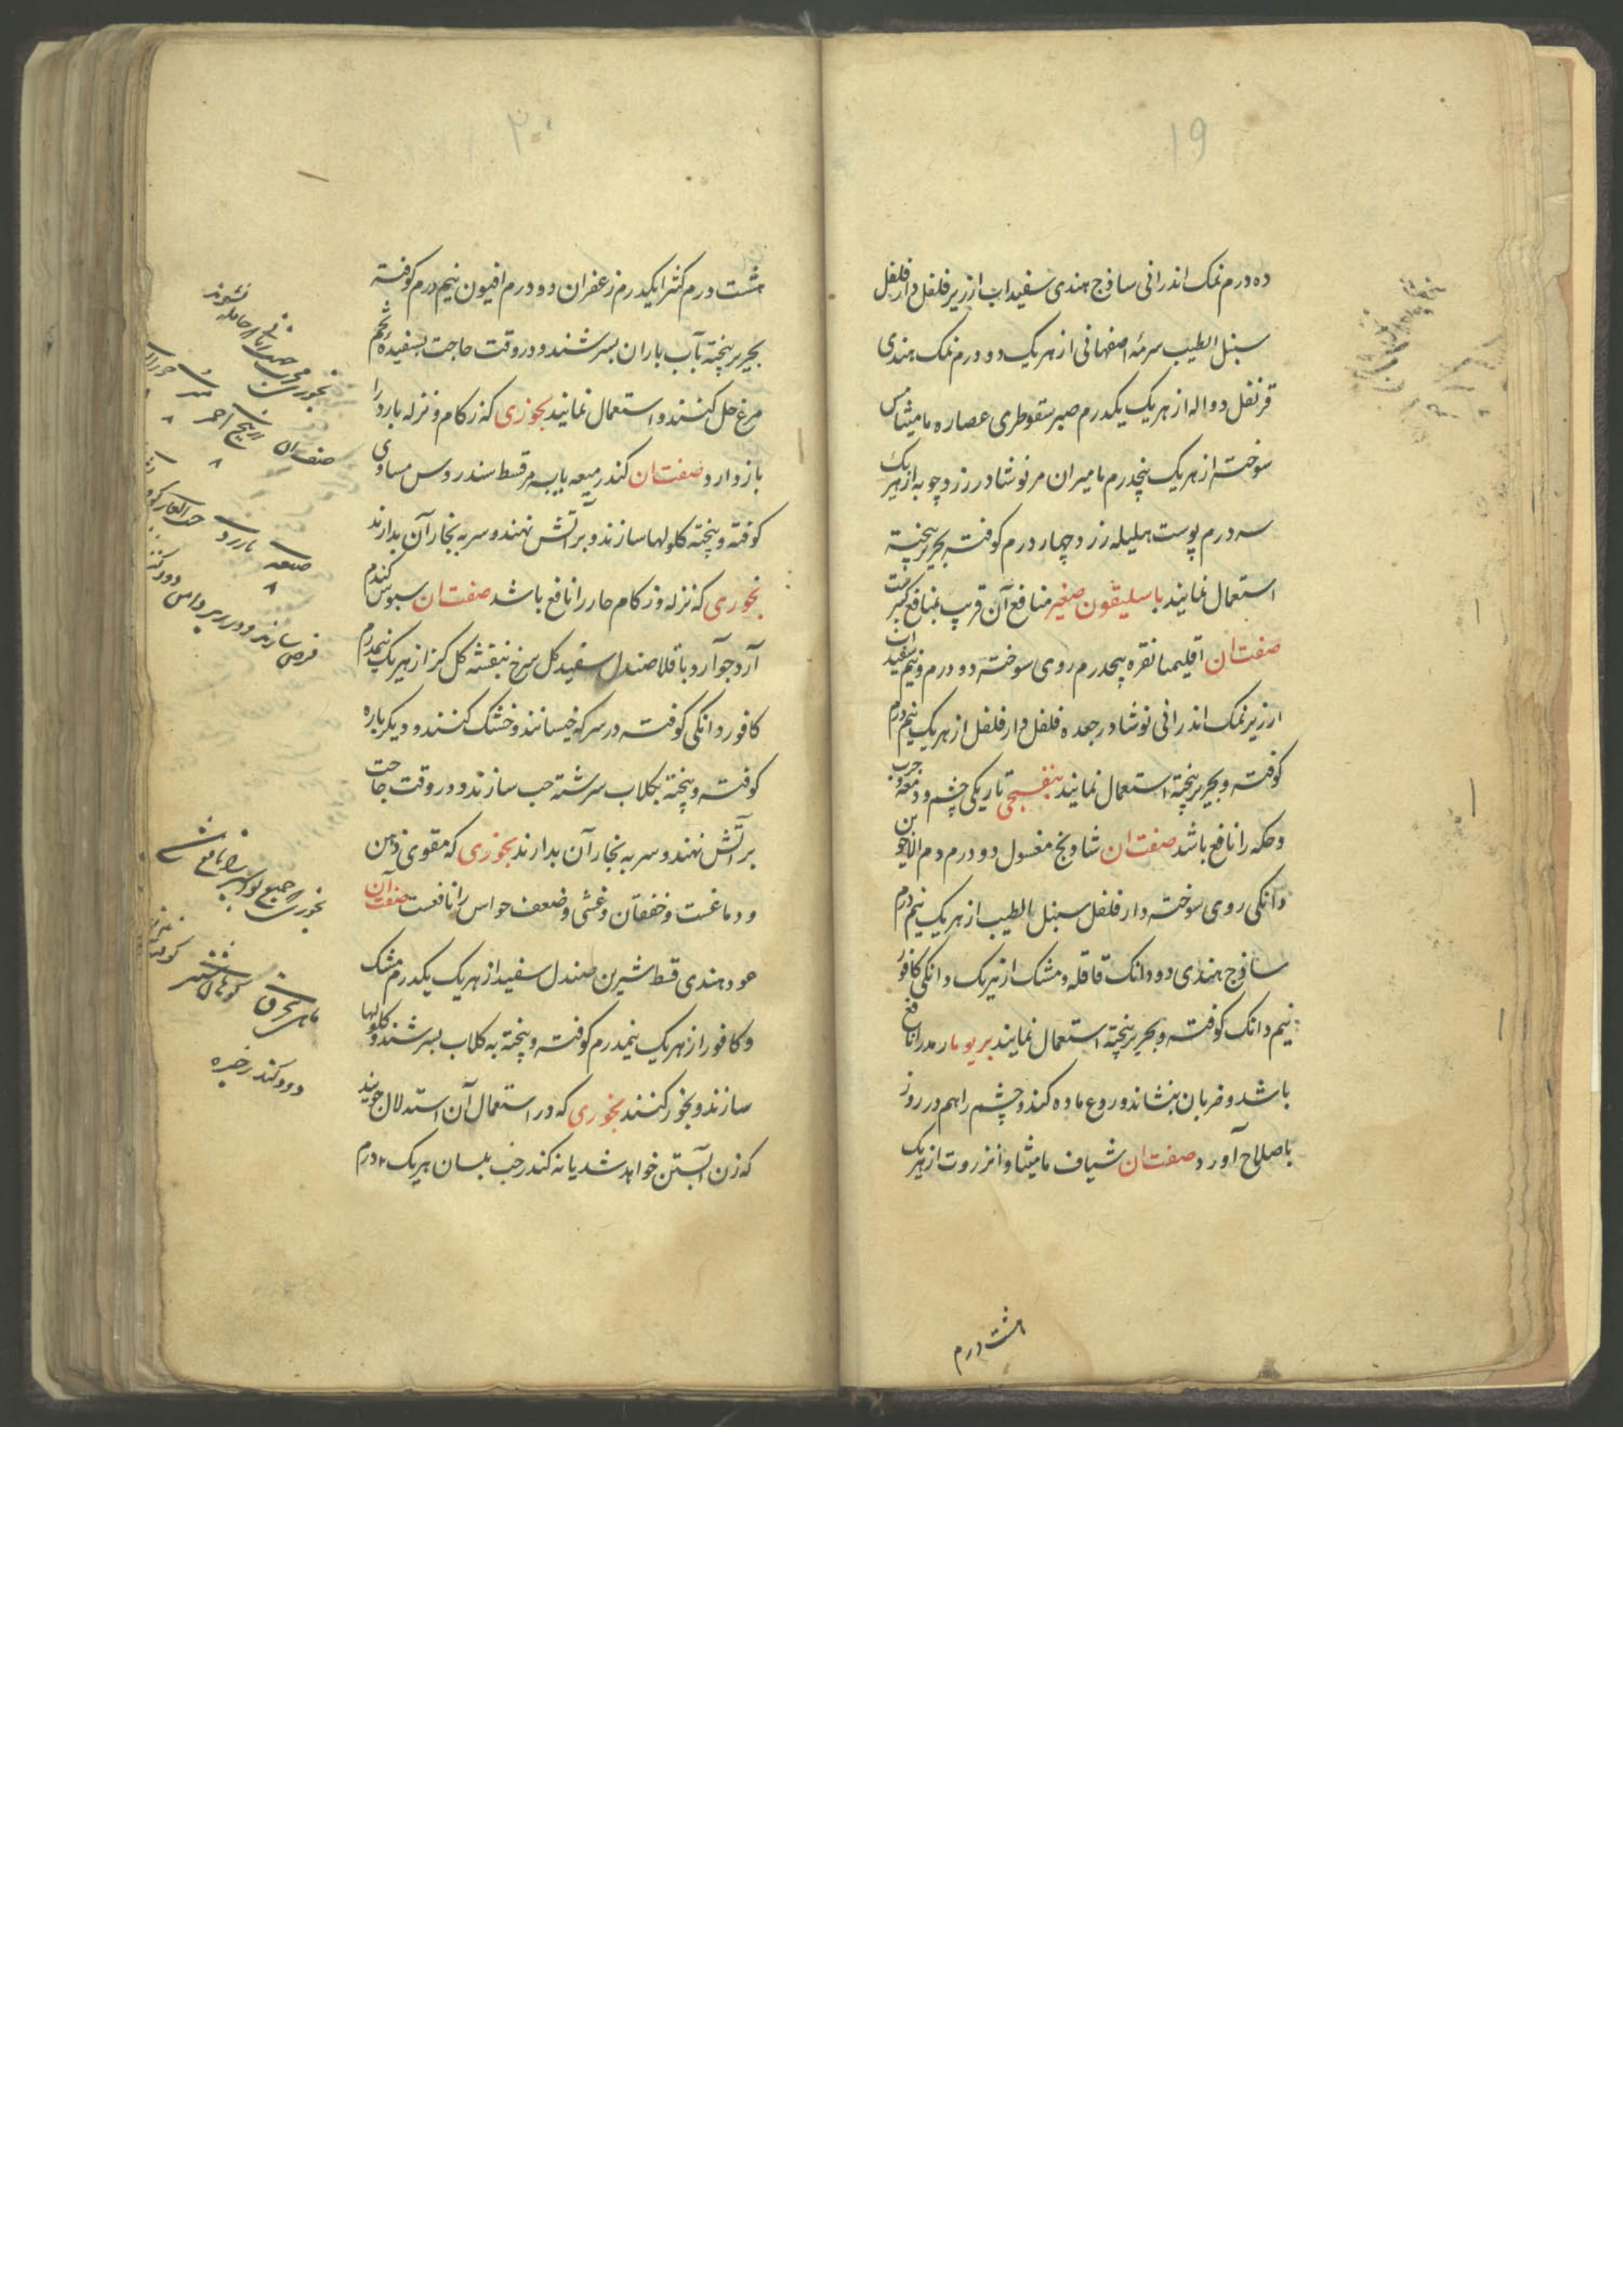 ۱۹
ده درم نمک اندرانی ساذج هندی سفیداب ارزیز فلفل دارفلفل
سنبل الطیب سرمه اصفهانی از هر یک دو درم نمک هندی
قرنفل دواله از هر یک یکدرم صبر سقوطری عصاره مامیثا مس
سوخته از هر یک پنجدرم مامیران مر نوشادر زردچوبه از هر یک
سه درم پوست هلیله زرد چهار درم کوفته بحریر بیخته
استعمال نمایند باسلیقون صغیر منافع آن قریب بمنافع کبیر است
صفت ان اقلیمیا نقره پنجدرم روی سوخته دو درم و نیم سفیداب
ارزیز نمک اندرانی نوشادر جعده فلفل دارفلفل از هر یک نیم درم
کوفته و بحریر بیخته استعمال نمایند بنفسجی تاریکی چشم و دمعه و جرب
و حکه را نافع باشد صفت ان شادنج مغسول دو درم دم الاخوین
دانکی روی سوخته دارفلفل سنبل الطیب از هر یک نیم درم
ساذج هندی دو دانک قاقله و مشک از هر یک دانکی کافور
نیم دانک کوفته و بحریر بیخته استعمال نمایند بریوما رمد را نافع
باشد و ضربان بنشاند و روع ماده کند و چشم را هم در روز
باصلاح آورد صفت ان شیاف مامیثا و انزروت از هر یک
هشت درم
۲۰
هشت درم کثیرا یکدرم زعفران دو درم افیون نیم درم کوفته
بحریر بیخته بآب باران بسرشند و در وقت حاجت بسفیده تخم
مرغ حل کنند و استعمال نمایند بخوری که زکام و نزله بارد را
باز دارد صفت ان کندر میعه یابسه مر قسط سندروس مساوی
کوفته و بیخته کلولها سازند و بر آتش نهند و سر به بخار آن بدارند
بخوری که نزله و زکام حار را نافع باشد صفت ان سبوس کندم
آرد جو آرد باقلا صندل سفید کل سرخ بنفشه کل کز از هر یک نیمدرم
کافور دانکی کوفته در سرکه خیسانند و خشک کنند و دیکر باره
کوفته و بیخته بکلاب سرشته حب سازند و در وقت حاجت
بر آتش نهند و سر به بخار آن بدارند بخوری که مقوی ذهن
و دماغست و خفقان و غشی و ضعف حواس را نافعست صفت آن
عود هندی قسط شیرین صندل سفید از هر یک یکدرم مشک
و کافور از هر یک نیمدرم کوفته و بیخته به کلاب بسرشند و کلولها
سازند و بخور کنند بخوری که در استعمال آن استدلال جویند
که زن آبستن خواهد شد یا نه کندر حب بلسان هر یک ۲ درم
صفت ان
زرنیخ احمر
قرص سازند و در زیر دامن دود کنند
بخوری که جمیع بواسیر را نافع